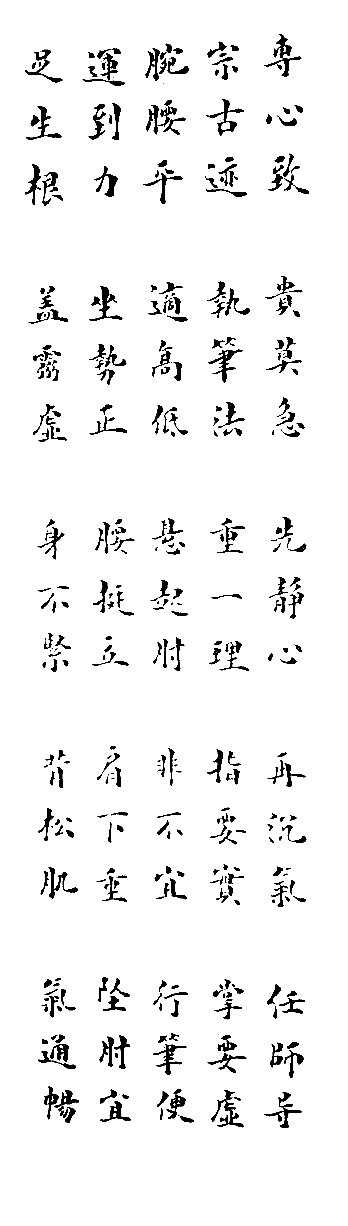 専心致 貴莫急 先静心 再沉氣 任師导
宗古迹 執筆法 重一理 指要實 掌要虛
腕腰平 適高低 悬起肘 非不宜 行筆便
運到力 坐勢正 腰挺立 肩下垂 坠肘宜
足生根 盖虛 身不緊 背松肌 氣通暢